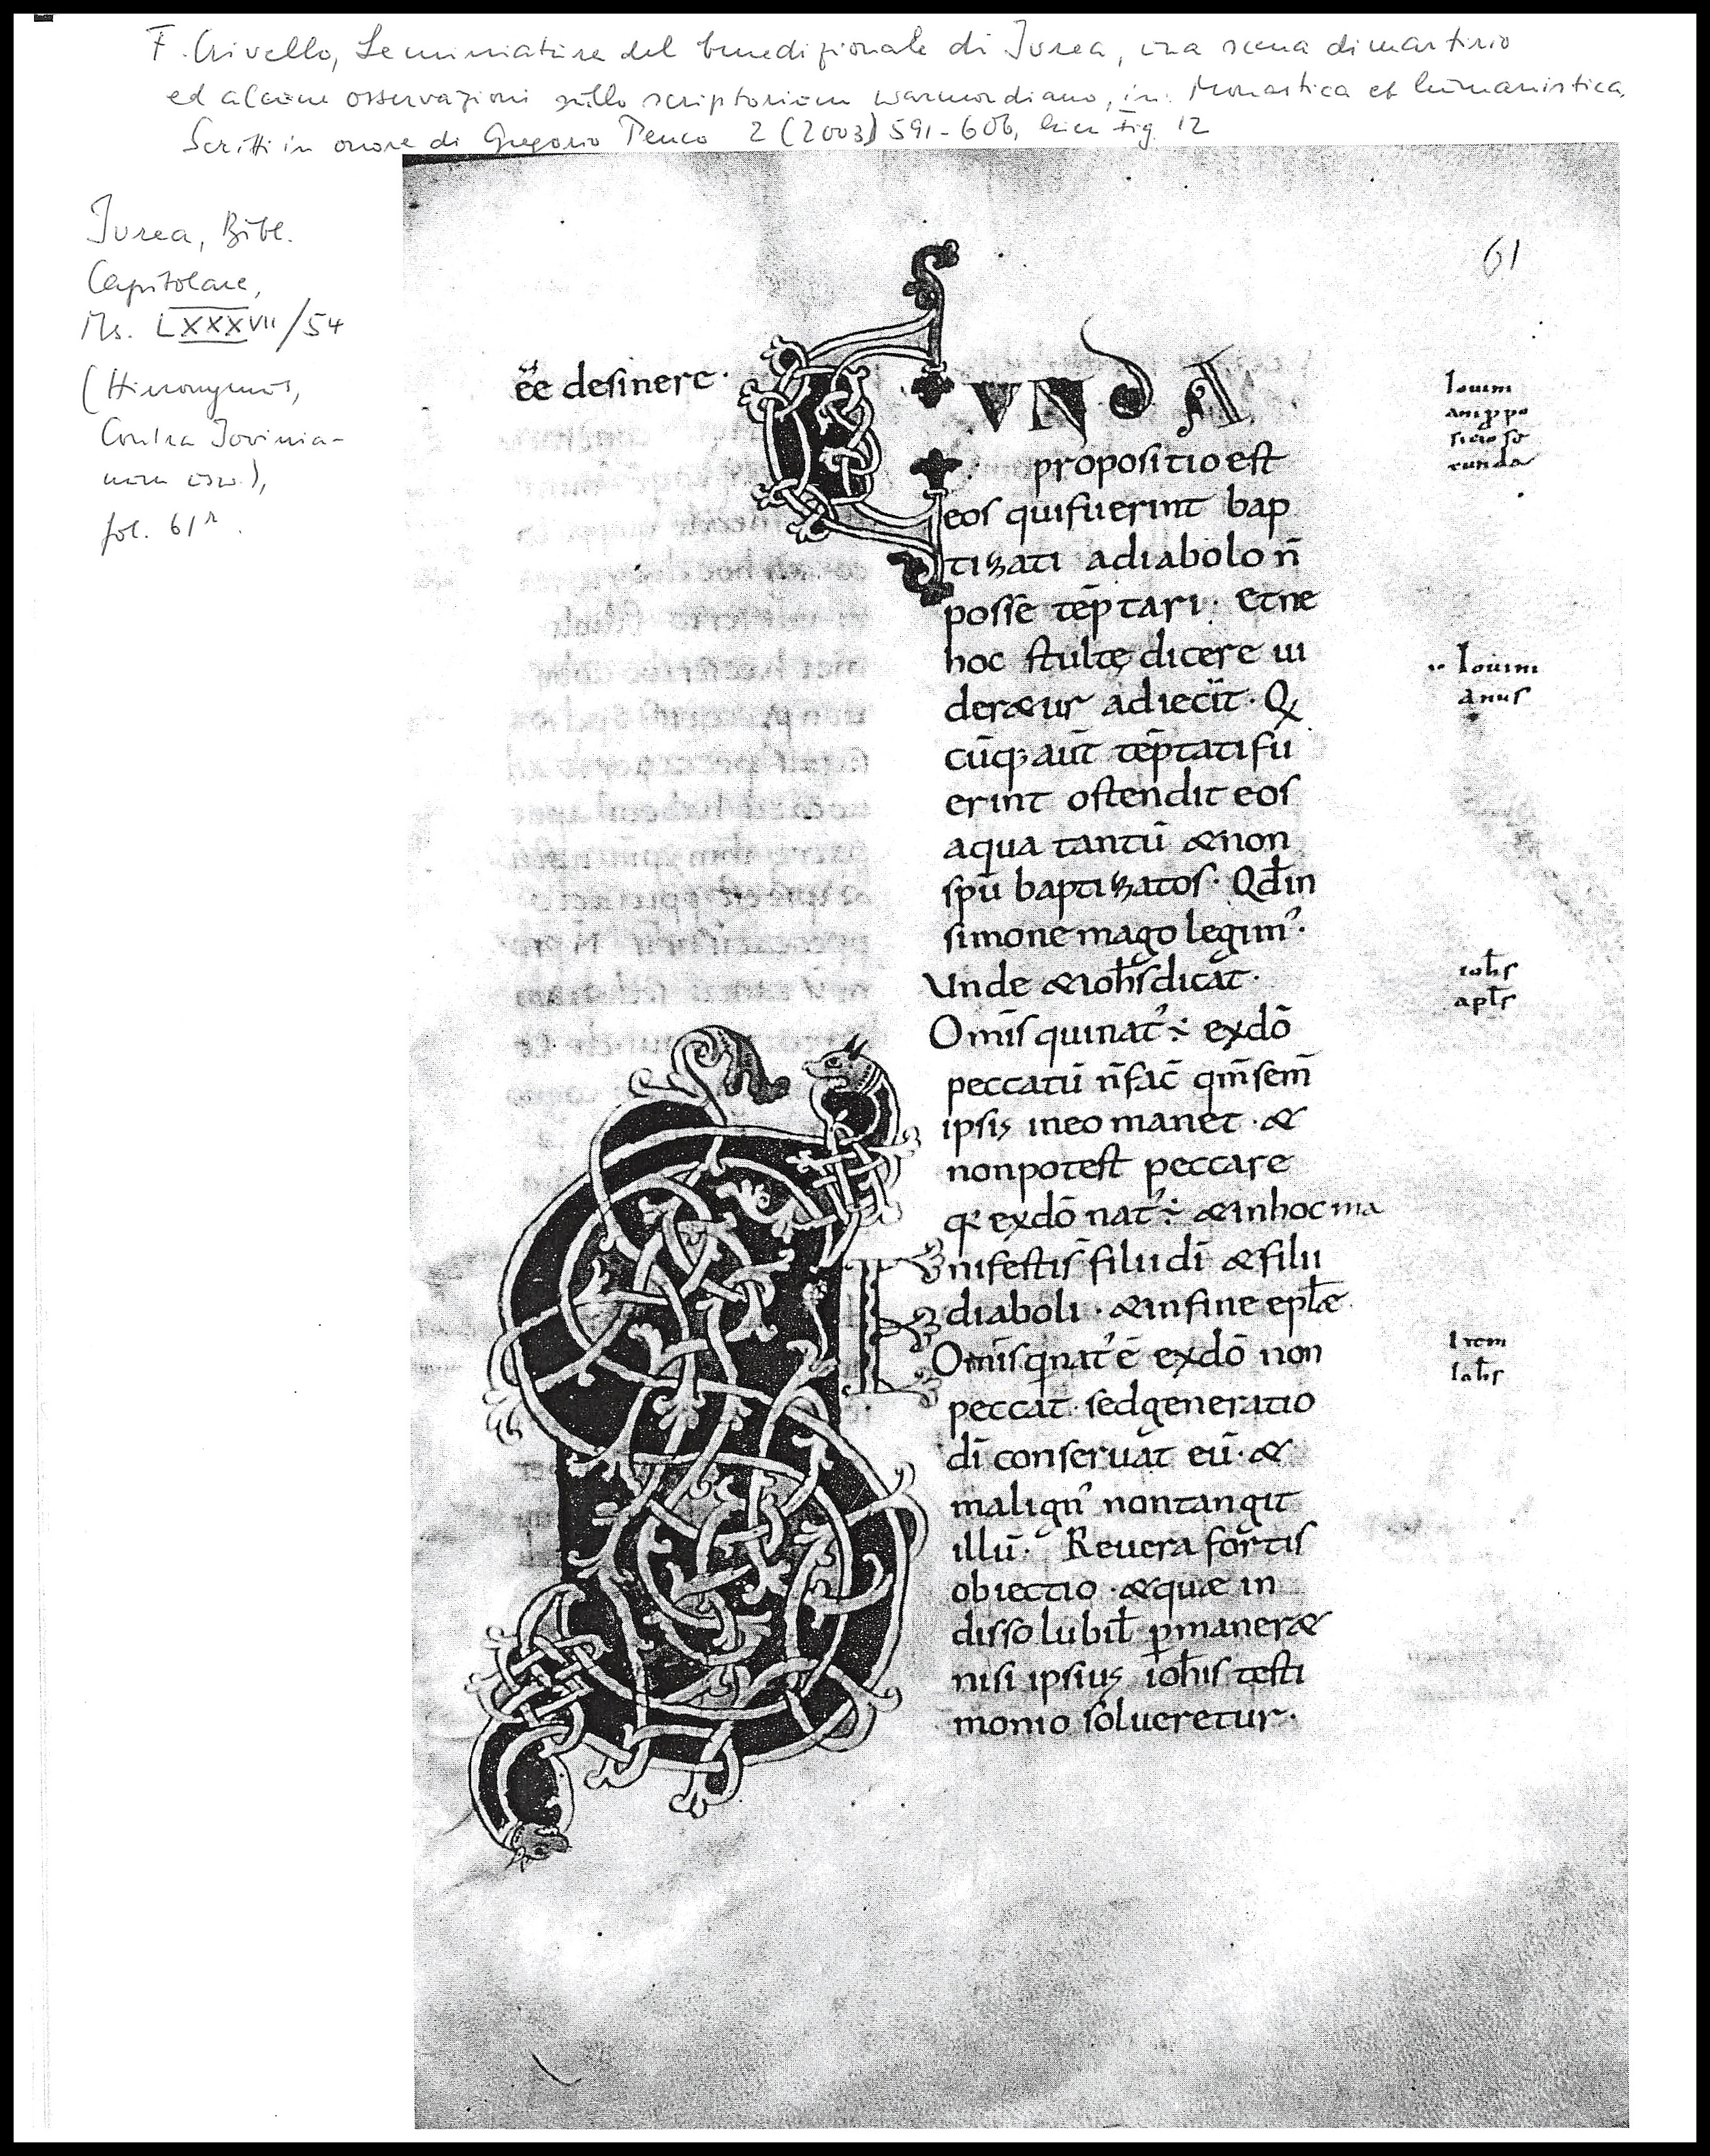 F. Crivello, Le miniature del benedizionale di Ivrea, una scena di martirio
ed alcune osservazioni sullo scriptorium warmondiano, in: Monastica et humanistica,
Scritti in onore di Gregorio Penco 2 (2003) 591-606, hier Fig. 12
Ivrea, Bibl.
Capitolare,
Ms. LXXXVII/54
(Hieronymus,
Contra Jovinia-
num usw.),
fol. 61r.
61
ēe desinere·
SECUNDA
propositio est
eos qui fuerint bap
tizati a diabolo n̄
posse tēptari· Et ne
hoc stultę dicere ui
deretur adiecit· Q
cūq; aut̄ tēptati fu
erint ostendit eos
aqua tantū & non
spū baptizatos· Qd̄ in
simone mago legim'·
Unde & ioh̄s dicat·
Om̄is qui nat' ÷ ex dō
peccatū n̄ fac̄ qm̄ sem̄
ipsi; in eo manet· &
non potest peccare
q̄ ex dō nat' ÷ & in hoc ma
nifesti s̄ filii dī & filii
diaboli· & in fine epl̄ae
Om̄is q nat' ē ex dō non
peccat· sed generatio
dī conseruat eū· &
malign' non tangit
illū· Reuera fortis
obiectio· & quae in
dissolubil̄ pmaneret
nisi ipsius ioh̄is testi
monio solueretur·
Iouini
ani ppo
sitio se
cunda
Iouini
anus
ioh̄s
apl̄s
Item
Ioh̄s